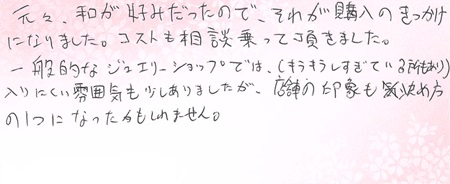 元々、和が好みだったので、それが購入のきっかけ
になりました。コストも相談乗って頂きました。
一般的なジュエリーショップでは、(キラキラしすぎている所もあり)
入りにくい雰囲気も少しありましたが、店舗の印象も決め方
の1つになったかもしれません。